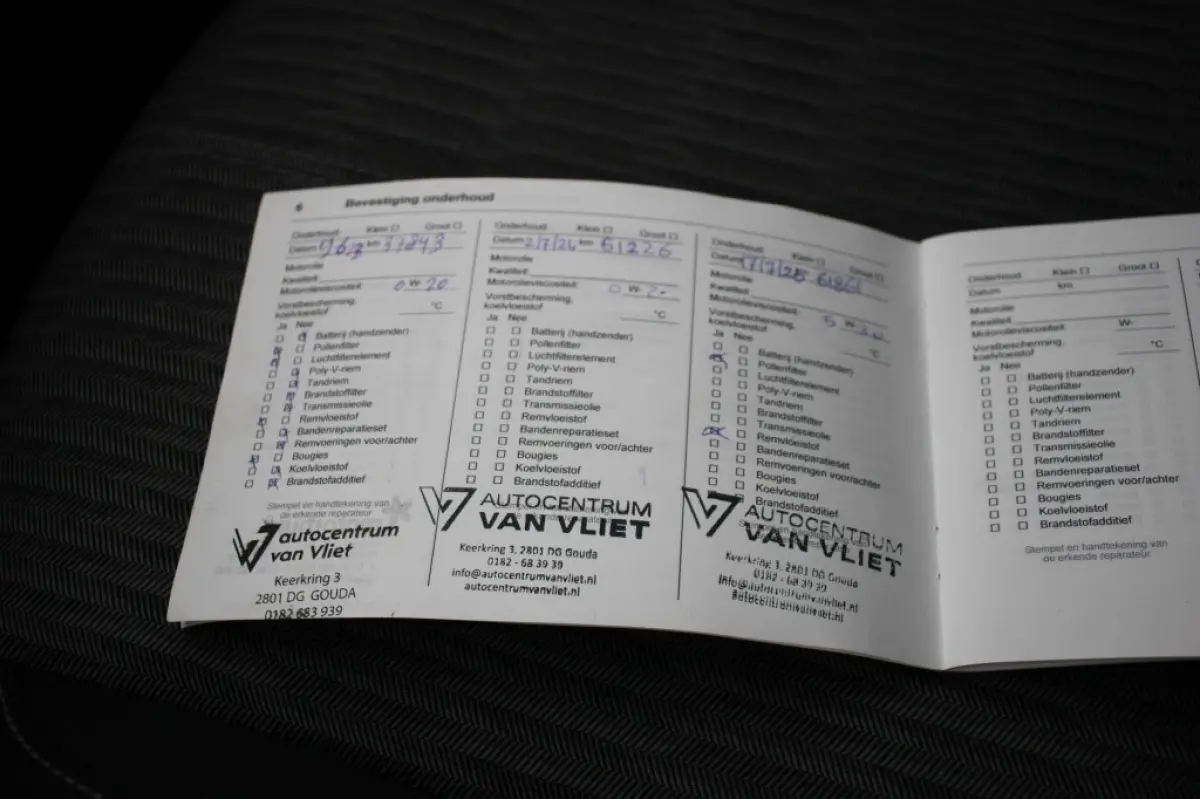 6 Bevestiging onderhoud
Onderhoud Klein Groot
Datum km 37843
Motorolie
Kwaliteit
Motorolieviscositeit 0 W- 20
Vorstbescherming,
koelvloeistof °C
Ja Nee
Batterij (handzender)
Pollenfilter
Luchtfilterelement
Poly-V-riem
Tandriem
Brandstoffilter
Transmissieolie
Remvloeistof
Bandenreparatieset
Remvoeringen voor/achter
Bougies
Koelvloeistof
Brandstofadditief
Stempel en handtekening van
de erkende reparateur
autocentrum
van Vliet
Keerkring 3
2801 DG GOUDA
0182 683 939
Onderhoud Klein Groot
Datum 2/7/24 km 61226
Motorolie
Kwaliteit
Motorolieviscositeit 0 W- 20
Vorstbescherming,
koelvloeistof °C
Ja Nee
Batterij (handzender)
Pollenfilter
Luchtfilterelement
Poly-V-riem
Tandriem
Brandstoffilter
Transmissieolie
Remvloeistof
Bandenreparatieset
Remvoeringen voor/achter
Bougies
Koelvloeistof
Brandstofadditief
AUTOCENTRUM
VAN VLIET
Keerkring 3, 2801 DG Gouda
0182 - 68 39 39
info@autocentrumvanvliet.nl
autocentrumvanvliet.nl
Onderhoud Klein Groot
Datum
Motorolie
Kwaliteit
Motorolieviscositeit 5 W-
Vorstbescherming,
koelvloeistof °C
Ja Nee
Batterij (handzender)
Pollenfilter
Luchtfilterelement
Poly-V-riem
Tandriem
Brandstoffilter
Transmissieolie
Remvloeistof
Bandenreparatieset
Remvoeringen voor/achter
Bougies
Koelvloeistof
Brandstofadditief
AUTOCENTRUM
VAN VLIET
Keerkring 3, 2801 DG Gouda
0182 - 68 39 39
info@autocentrumvanvliet.nl
autocentrumvanvliet.nl
Onderhoud Klein Groot
Datum km
Motorolie
Kwaliteit
Motorolieviscositeit W-
Vorstbescherming,
koelvloeistof °C
Ja Nee
Batterij (handzender)
Pollenfilter
Luchtfilterelement
Poly-V-riem
Tandriem
Brandstoffilter
Transmissieolie
Remvloeistof
Bandenreparatieset
Remvoeringen voor/achter
Bougies
Koelvloeistof
Brandstofadditief
Stempel en handtekening van
de erkende reparateur